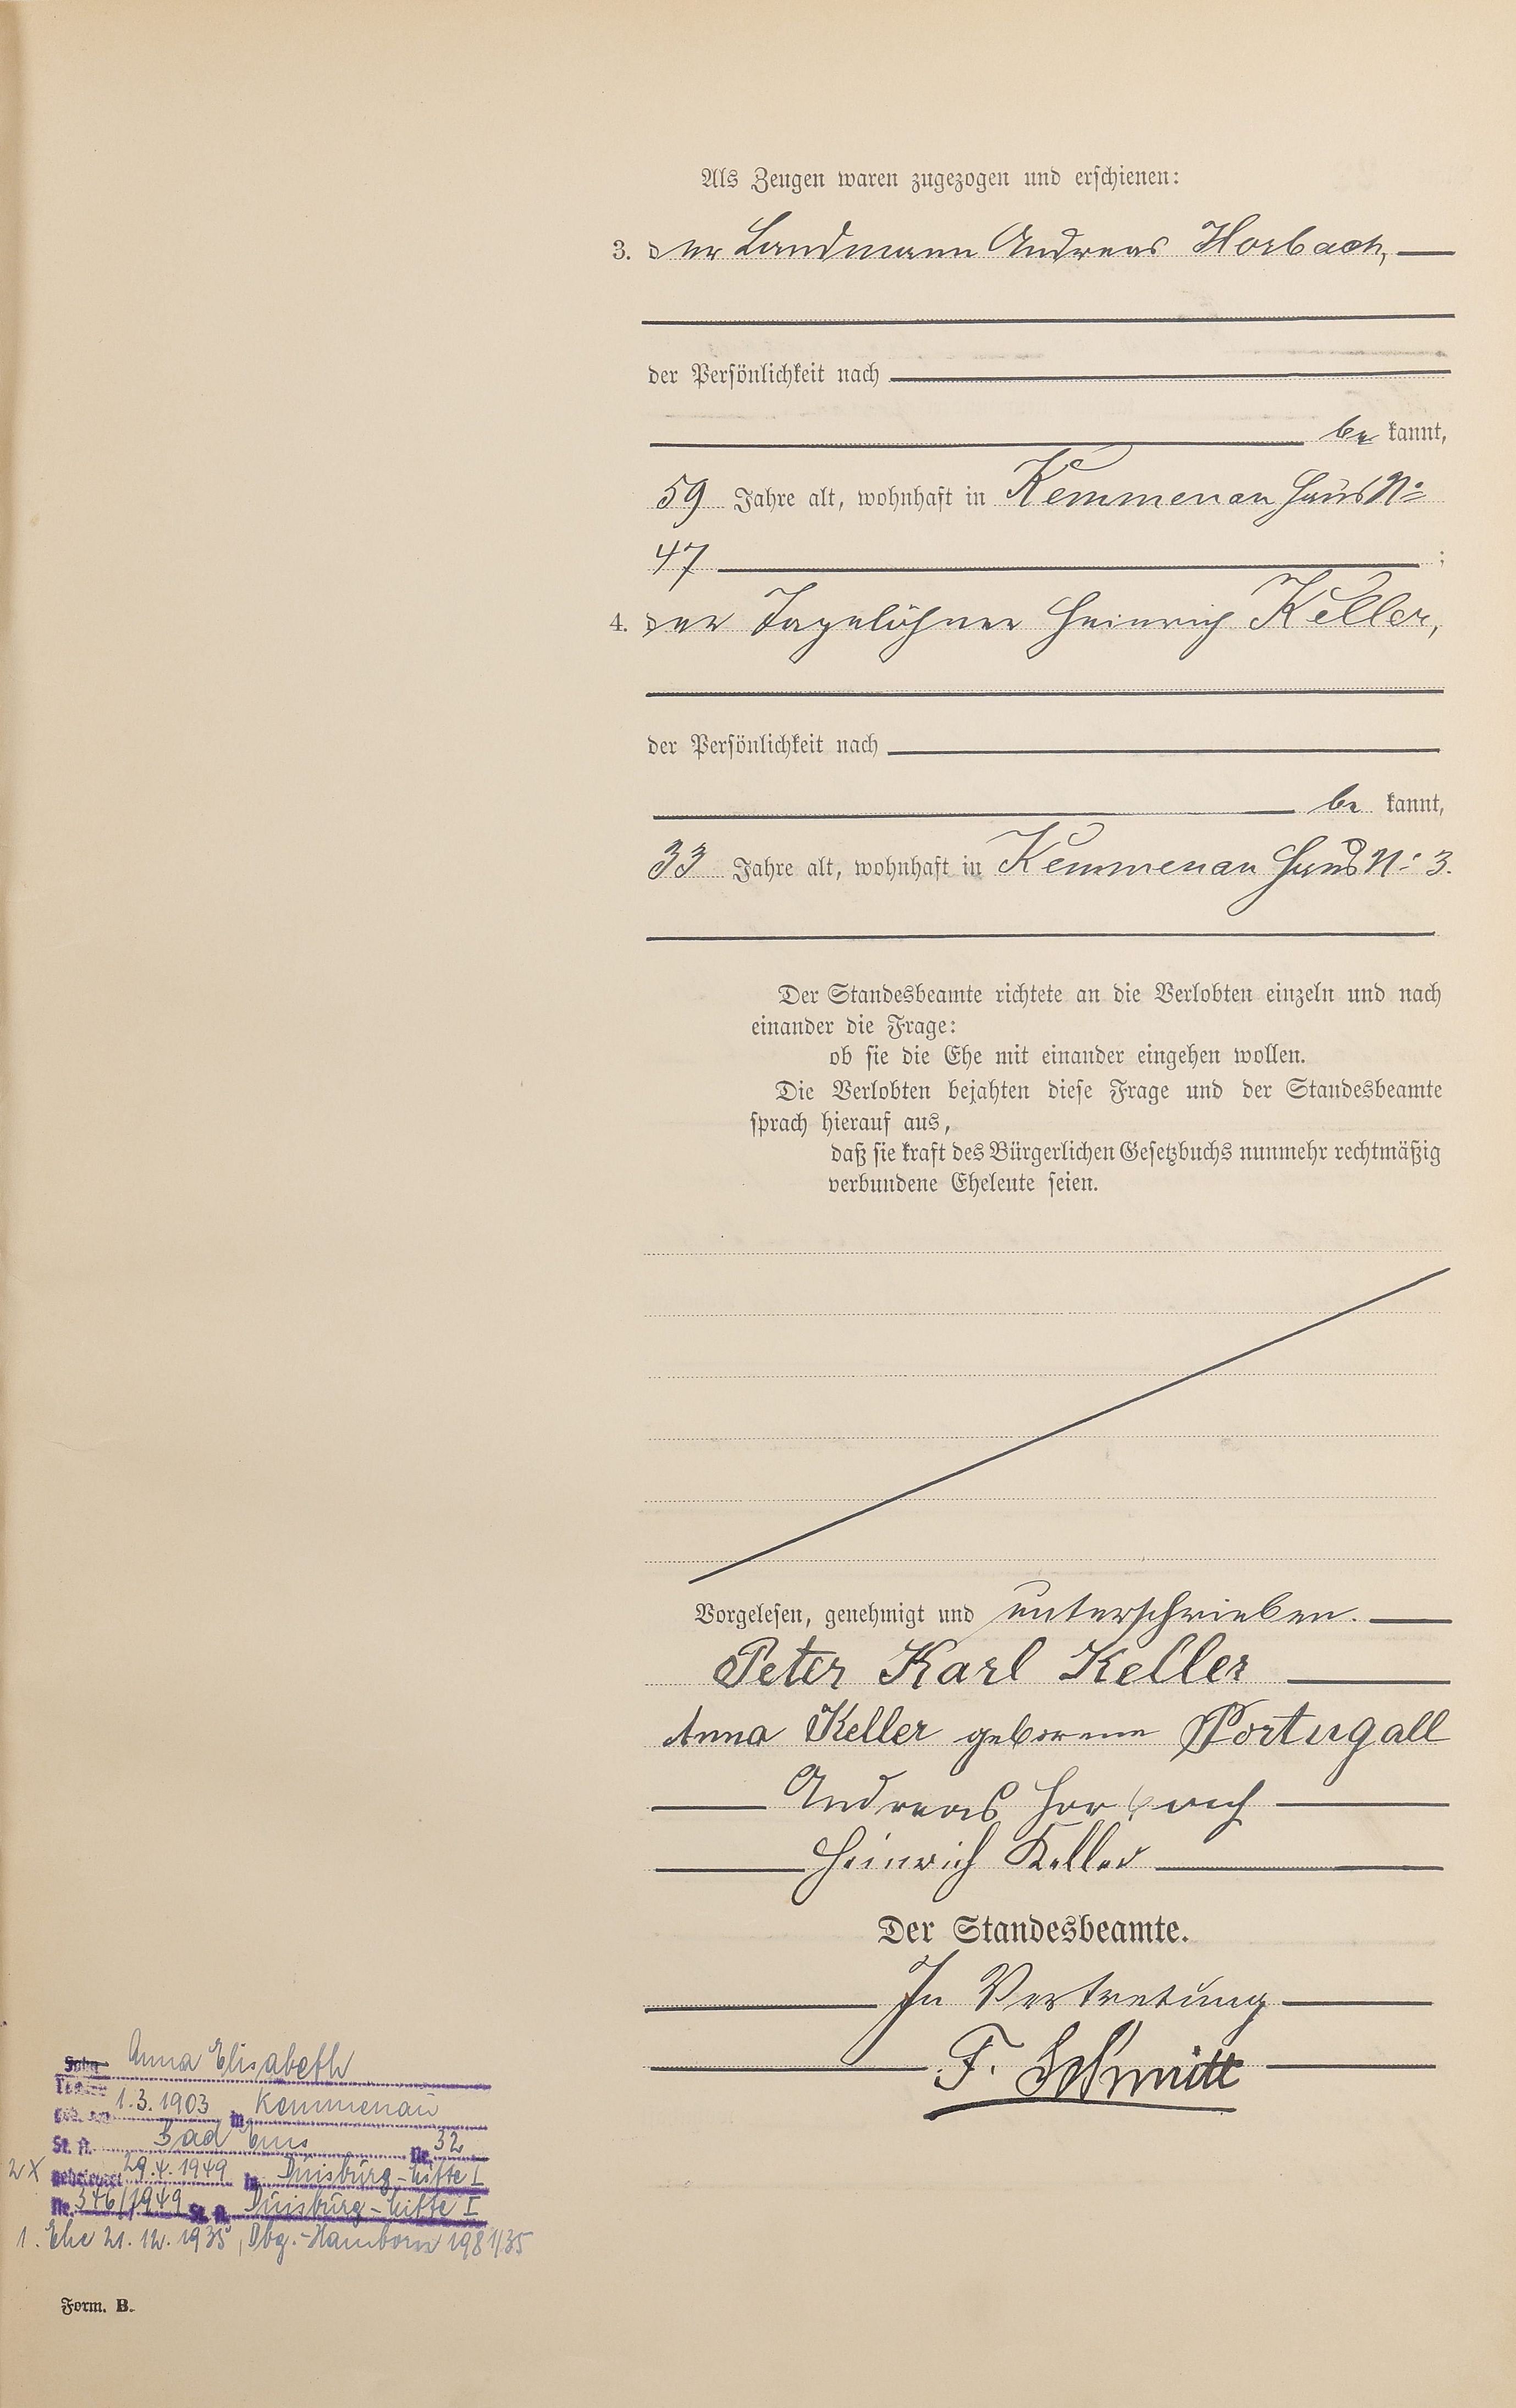 Als Zeugen waren zugezogen und erschienen:
3. der Landmann Andreas Horbach,
der Persönlichkeit nach
be kannt,
59 Jahre alt, wohnhaft in Kemmenau Haus No
47 ;
4. der Tagelöhner Heinrich Keller,
der Persönlichkeit nach
be kannt,
33 Jahre alt, wohnhaft in Kemmenau Haus No 3.
Der Standesbeamte richtete an die Verlobten einzeln und nach
einander die Frage:
ob sie die Ehe mit einander eingehen wollen.
Die Verlobten bejahten diese Frage und der Standesbeamte
sprach hierauf aus,
daß sie kraft des Bürgerlichen Gesetzbuchs nunmehr rechtmäßig
verbundene Eheleute seien.
Vorgelesen, genehmigt und unterschrieben.
Peter Karl Keller
Anna Keller geborene Portugall
Andreas Horbach
Heinrich Keller
Der Standesbeamte.
In Vertretung
F. Schmitt
Sohn Anna Elisabeth
Tochter
geb. am 1.3.1903 in Kemmenau
St. A. Bad Ems Nr. 32
2x geheiratet 29.4.1949 in Duisburg-Mitte I
Nr. 346/1949 St. A. Duisburg-Mitte I
1. Ehe 21.12.1935, Dbg.-Hamborn 1981/35
Form. B.